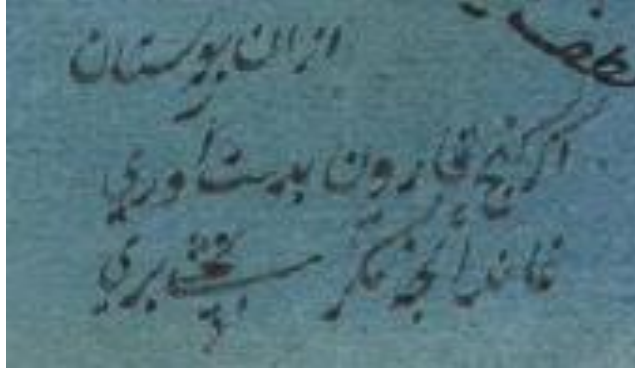 ازان بوستان
اگر گنج قارون بدست آوری
نماند أنچه مگر بخشی بری